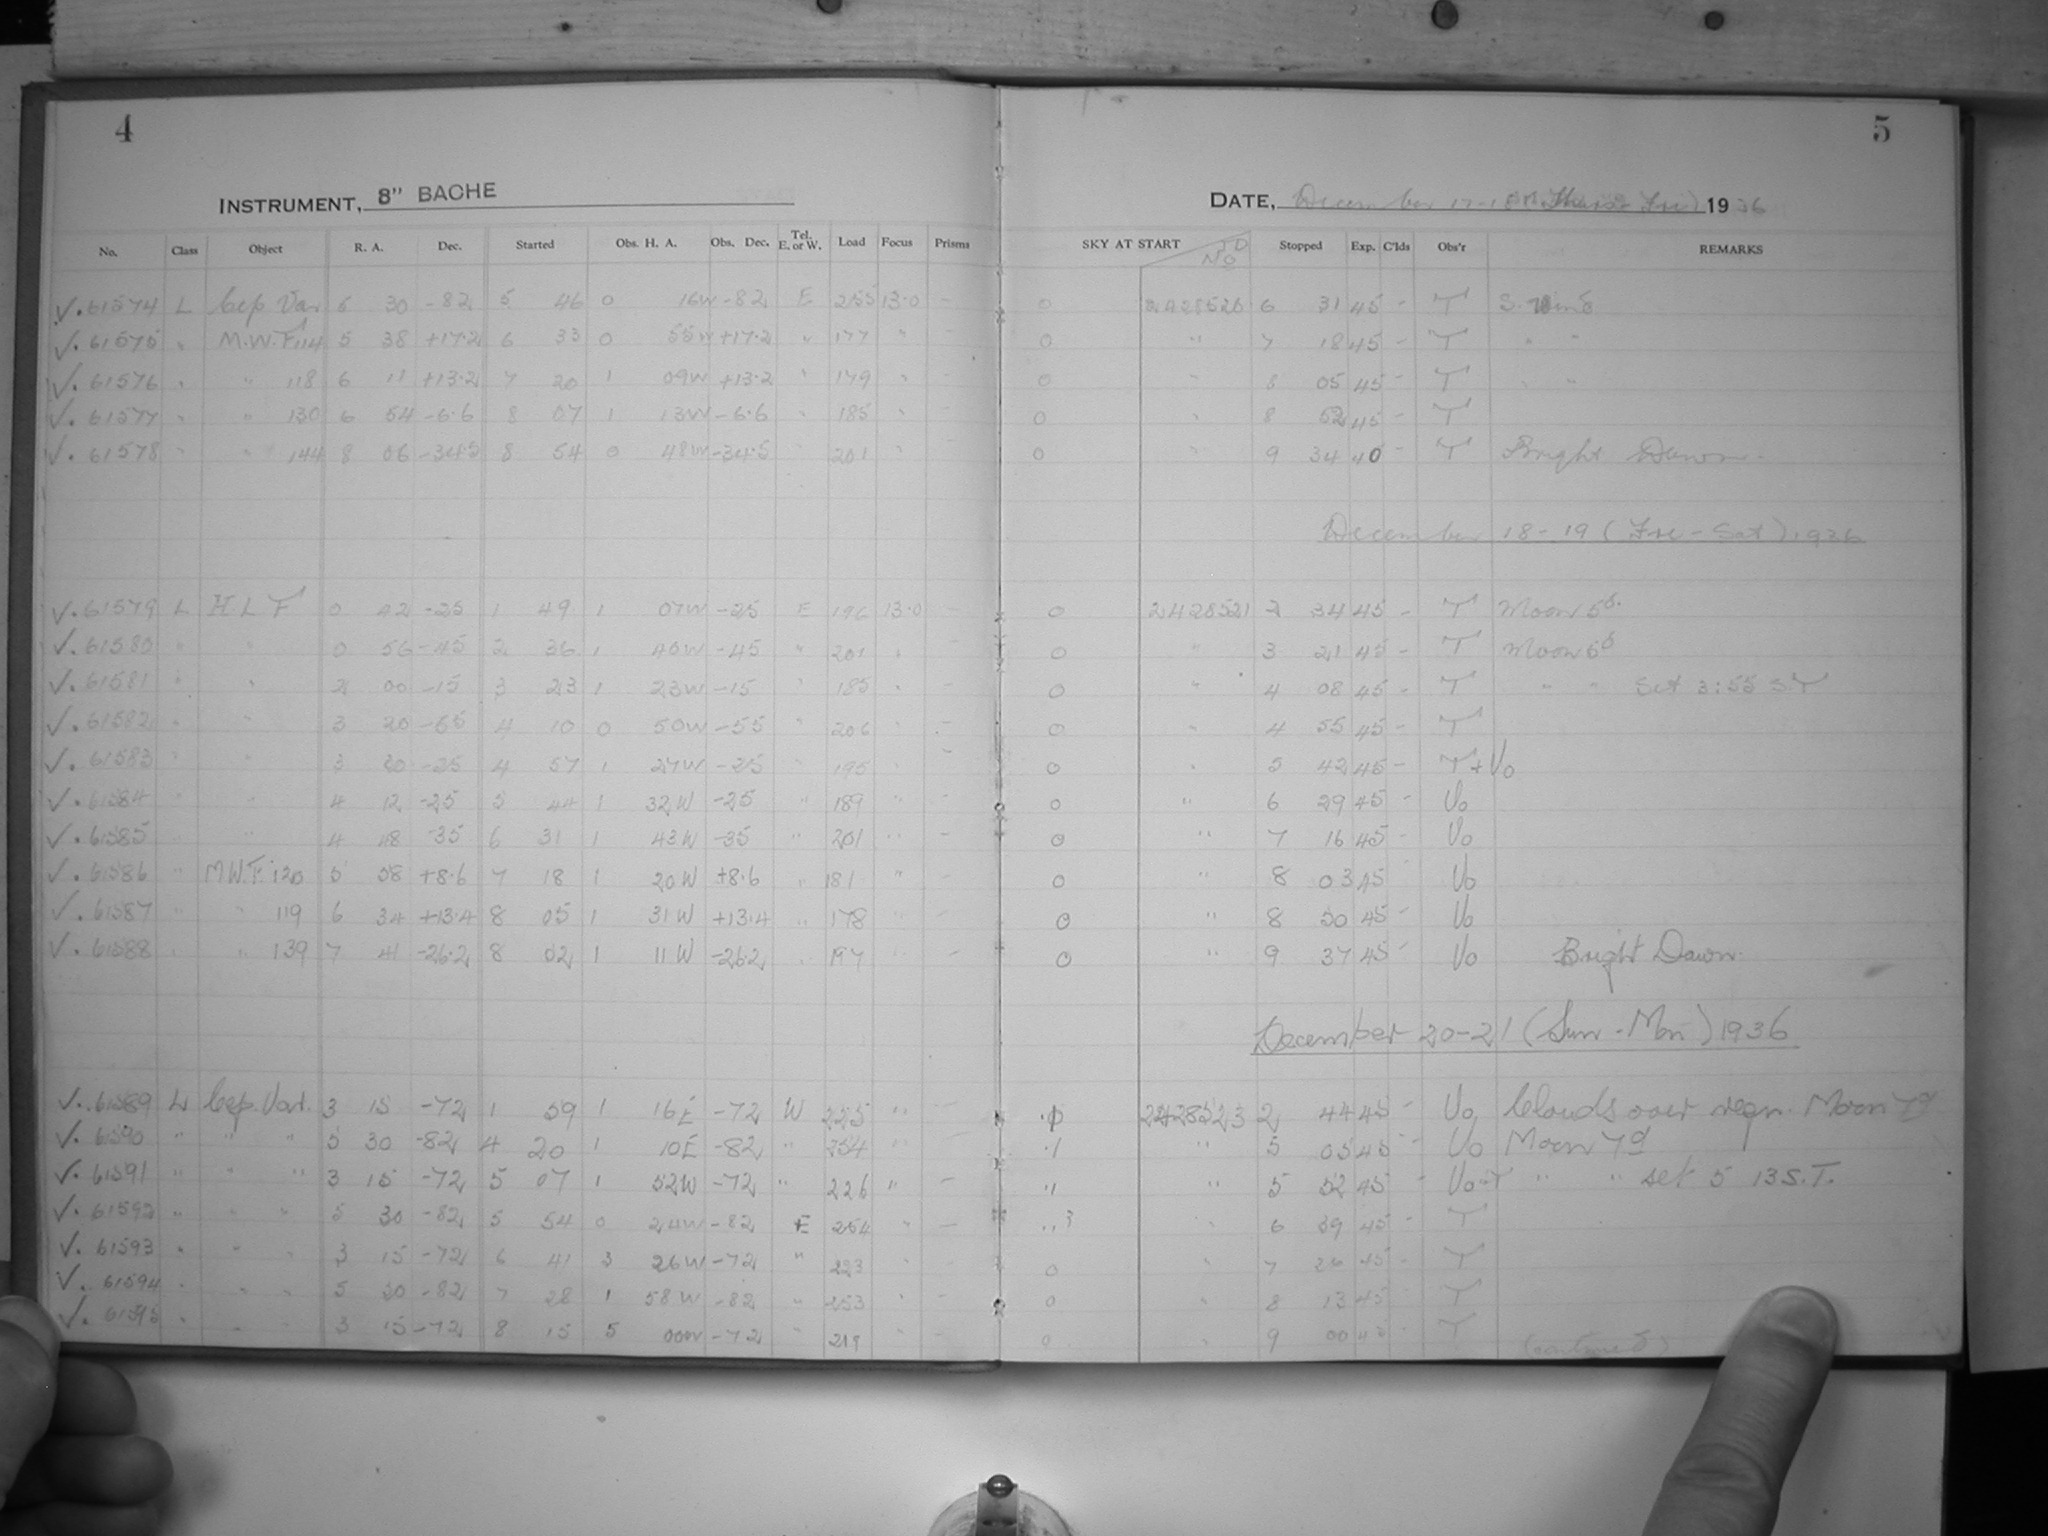 4
5
INSTRUMENT, 8" BACHE
DATE, December 17-18 (Thurs-Fri) 1936
No. Class Object R. A. Dec. Started Obs. H. A. Obs. Dec. Tel. E. or W. Load Focus Prisms SKY AT START JD No Stopped Exp. C'lds Obs'r REMARKS
✓. 61574 L Cep Var 5 30 -82 5 46 0 16W -82 E 255 13.0 - 0 2428520 6 31 45 - T S. Wind
✓. 61575 " M.W.F. 114 5 38 +17.2 6 33 0 55W +17.2 " 177 " - 0 " 7 18 45 - T " "
✓. 61576 " " 118 6 11 +13.2 7 20 1 09W +13.2 " 179 " - 0 " 8 05 45 - T " "
✓. 61577 " " 130 6 54 -6.6 8 07 1 13W -6.6 " 185 " - 0 " 8 52 45 - T
✓. 61578 " " 144 8 06 -34.5 8 54 0 48W -34.5 " 201 " - 0 " 9 34 40 - T Bright Dawn.
December 18-19 (Fri-Sat) 1936
✓. 61579 L H L F 0 42 -25 1 49 1 07W -25 E 196 13.0 - 0 2428521 2 34 45 - T Moon 5d.
✓. 61580 " " 0 56 -45 2 36 1 40W -45 " 201 " - 0 " 3 21 45 - T Moon 5d
✓. 61581 " " 2 00 -15 3 23 1 23W -15 " 185 " - 0 " 4 08 45 - T " " Set 3:55 S.T
✓. 61582 " " 3 20 -55 4 10 0 50W -55 " 206 " - 0 " 4 55 45 - T
✓. 61583 " " 3 30 -25 4 57 1 27W -25 " 195 " - 0 " 5 42 45 - T + Vo
✓. 61584 " " 4 12 -25 5 44 1 32W -25 " 189 " - 0 " 6 29 45 - Vo
✓. 61585 " " 4 48 -35 6 31 1 43W -35 " 201 " - 0 " 7 16 45 - Vo
✓. 61586 " M.W.F. 120 5 58 +8.6 7 18 1 20W +8.6 " 181 " - 0 " 8 03 45 - Vo
✓. 61587 " " 119 6 34 +13.4 8 05 1 31W +13.4 " 178 " - 0 " 8 50 45 - Vo
✓. 61588 " " 139 7 41 -26.2 8 02 1 11W -26.2 " 197 " - 0 " 9 37 45 - Vo Bright Dawn.
December 20-21 (Sun-Mon) 1936
✓. 61589 L Cep. Var. 3 15 -72 1 59 1 16E -72 W 225 " - 2428523 2 44 45 - Vo Clouds over region. Moon 7d
✓. 61590 " " " 5 30 -82 4 20 1 10E -82 " 254 " - 1 " 5 05 45 - Vo Moon 7d
✓. 61591 " " " 3 15 -72 5 07 1 52W -72 " 226 " - " 5 52 45 - Vo-T " " set 5 13 S.T.
✓. 61592 " " " 5 30 -82 5 54 0 24W -82 E 254 " - " 6 39 45 - T
✓. 61593 " " " 3 15 -72 6 41 3 26W -72 " 223 " - 0 " 7 26 45 - T
✓. 61594 " " " 5 30 -82 7 28 1 58W -82 " 253 " - 0 " 8 13 45 - T
✓. 61595 " " " 3 15 -72 8 15 5 00W -72 " 219 " - 0 " 9 00 45 - T
(continued)